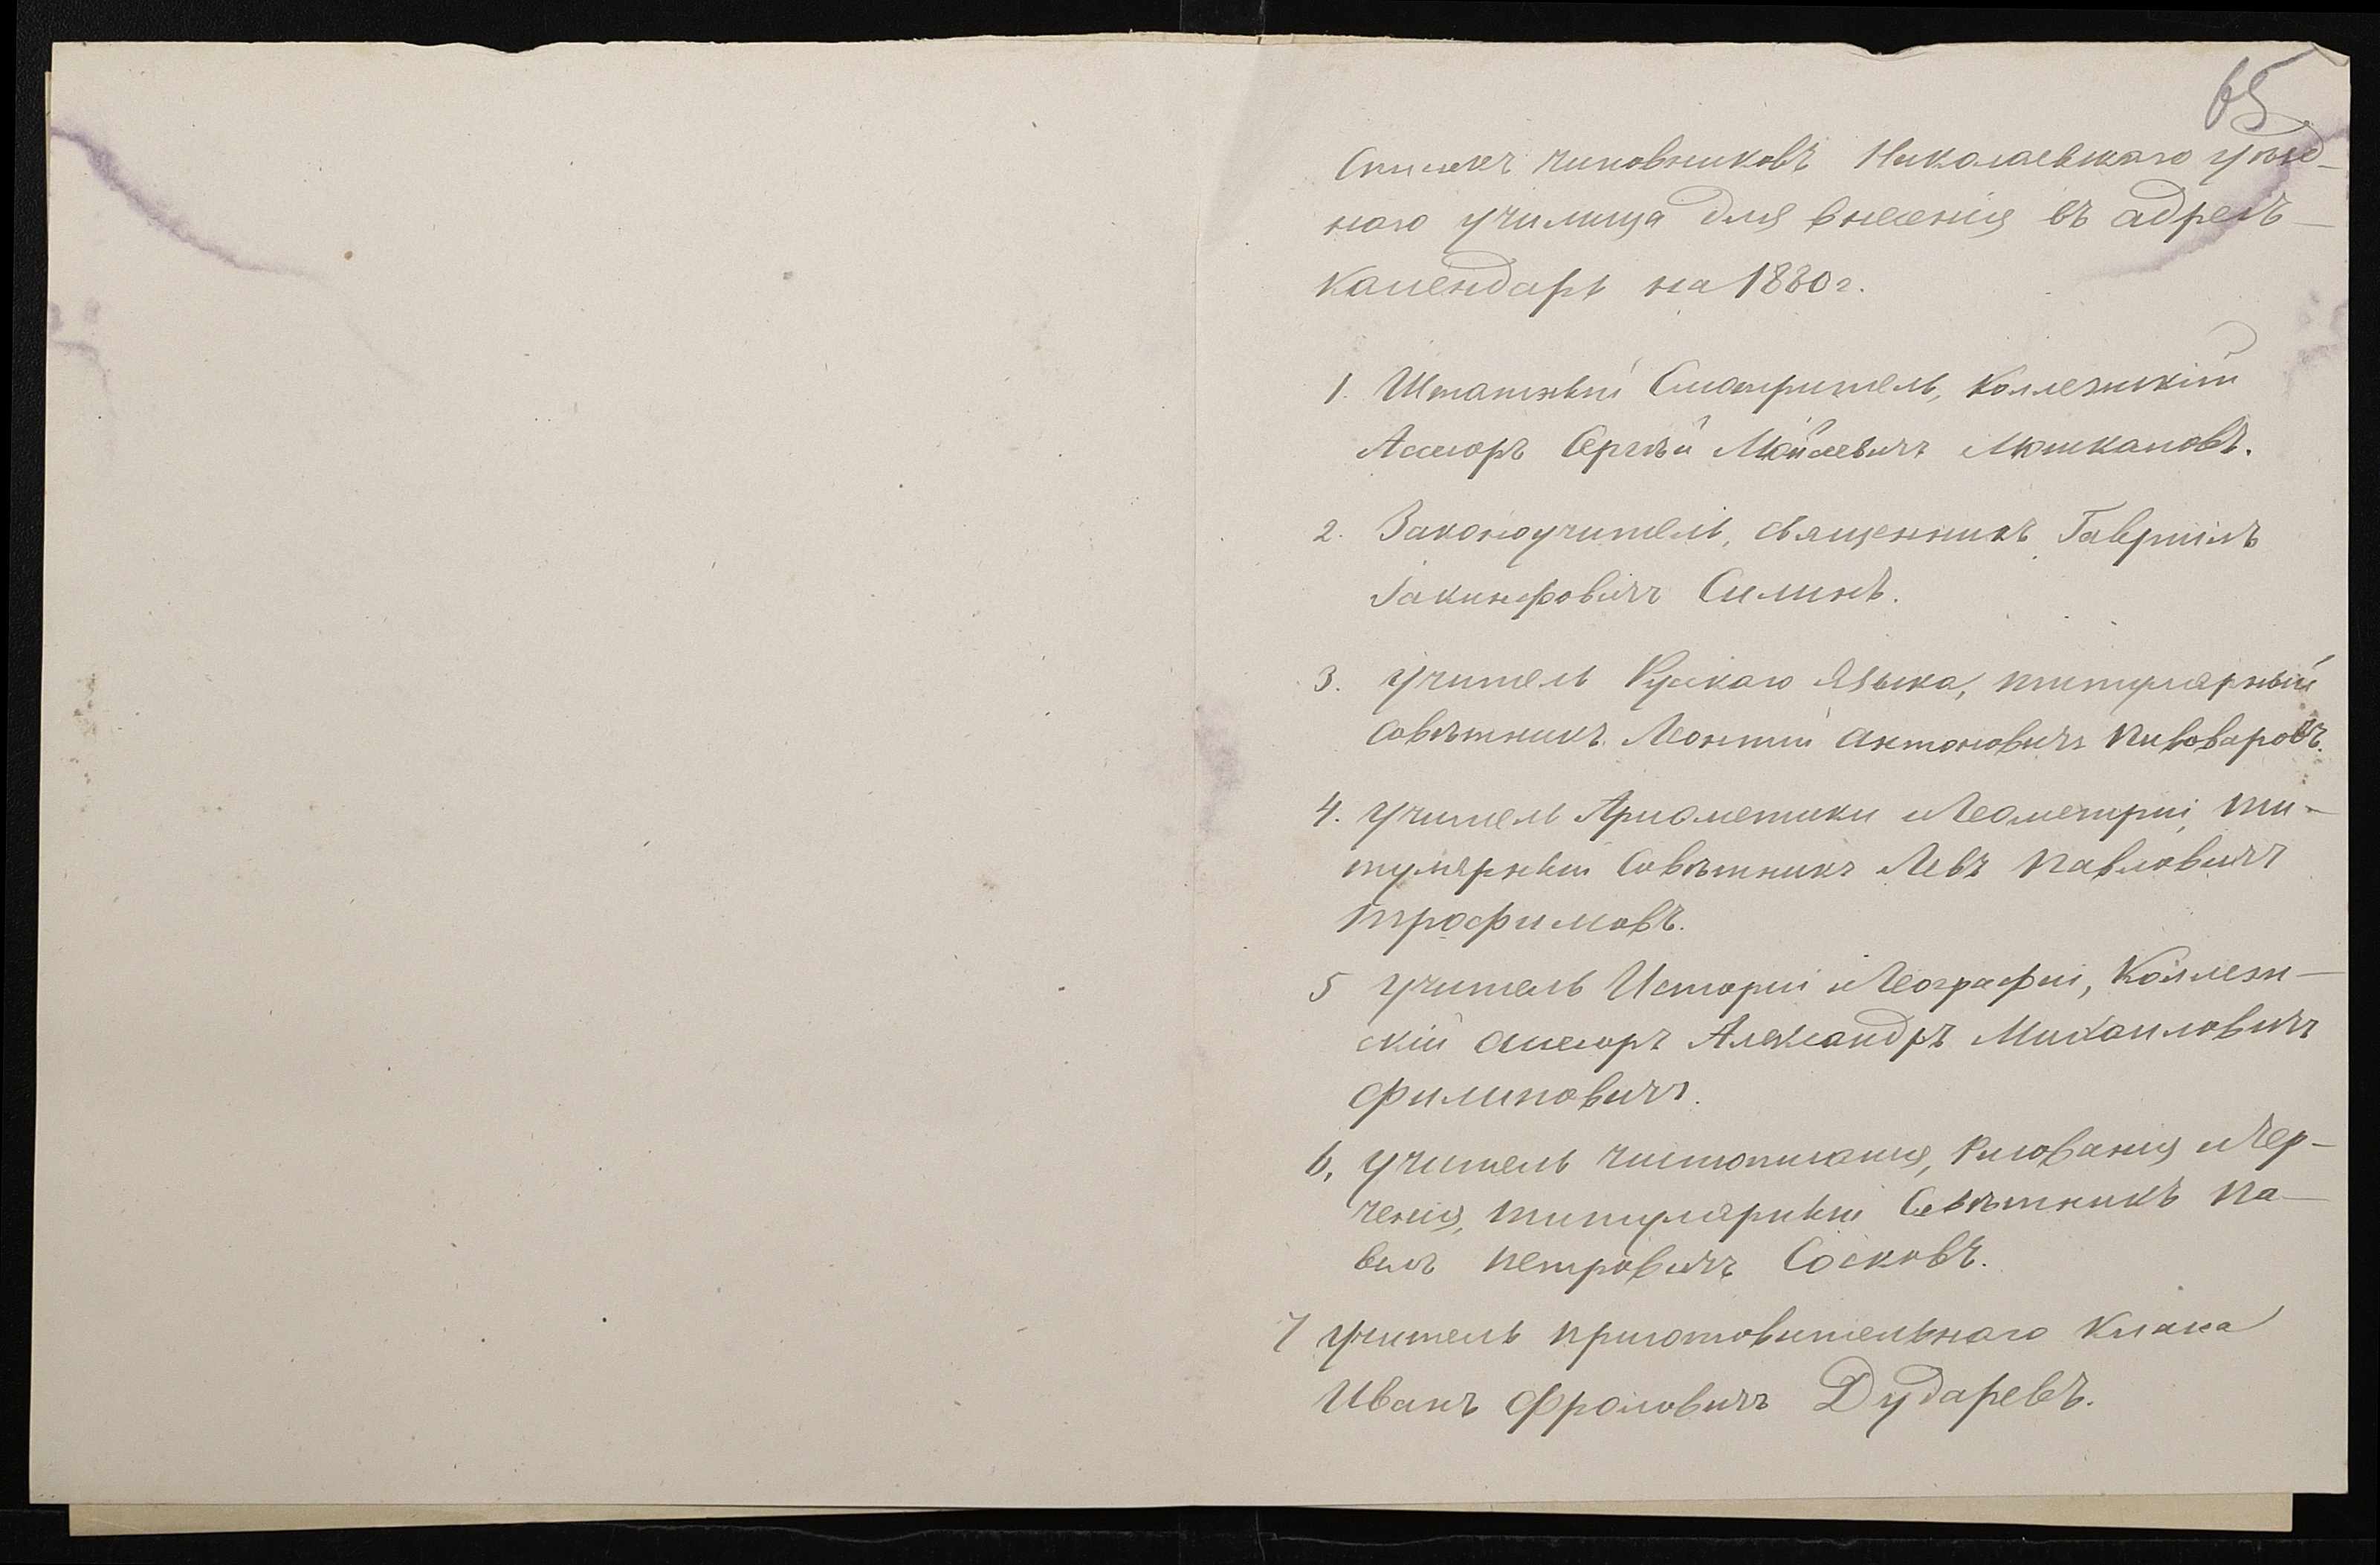 65
Списокъ чиновниковъ Николаевскаго уѣзд-
наго училища для внесенія въ адресъ-
календарь на 1880 г.
1. Штатный Смотритель, Коллежскій
Ассесоръ Сергѣй Мойсеевичъ Мошкановъ.
2. Законоучитель, священникъ Гавріилъ
Іакинфовичъ Силинъ.
3. Учитель Русскаго языка, титулярный
Совѣтникъ Леонтій Антоновичъ Пивоваровъ.
4. Учитель Ариѳметики и Геометріи, ти-
тулярный Совѣтникъ Левъ Павловичъ
Трофимовъ.
5 Учитель Исторіи и Географіи, Коллеж-
скій ассесоръ Александръ Михаиловичъ
Филиповичъ.
6, Учитель чистописанія, Рисованія и Чер-
ченія, титулярный Совѣтникъ Па-
велъ Петровичъ Сосковъ.
7 Учитель приготовительнаго Класса
Иванъ Фроловичъ Дударевъ.